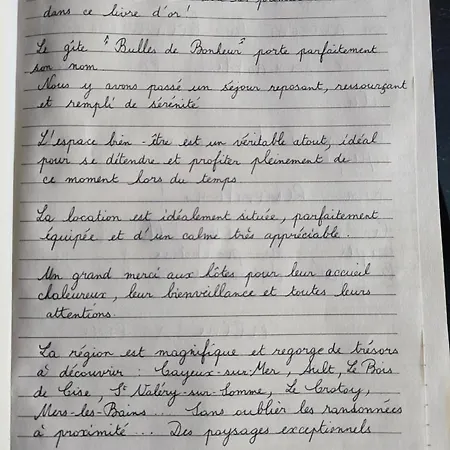 dans ce livre d'or !
Le gîte "Bulles de Bonheur" porte parfaitement
son nom
Nous y avons passé un séjour reposant, ressourçant
et rempli de sérénité
L'espace bien-être est un véritable atout, idéal
pour se détendre et profiter pleinement de
ce moment hors du temps.
La location est idéalement située, parfaitement
équipée et d'un calme très appréciable.
Un grand merci aux hôtes pour leur accueil
chaleureux, leur bienveillance et toutes leurs
attentions.
La région est magnifique et regorge de trésors
à découvrir : Cayeux-sur-Mer, Ault, Le Bois
de Cise, St Valéry-sur-Somme, Le Crotoy,
Mers-les-Bains... Sans oublier les randonnées
à proximité... Des paysages exceptionnels